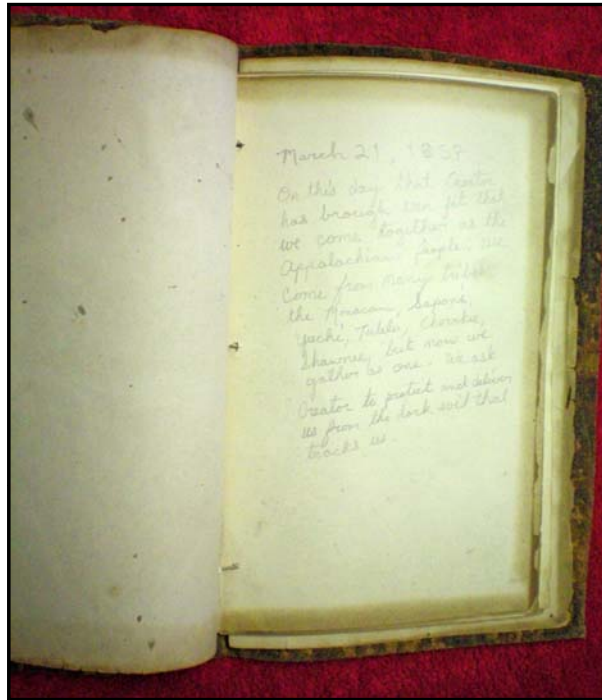 March 21, 185
On this day that Creator
has brough see fit that
we come together as the
Appalachian People. We
Come from many tribes
the Monacan, Saponi,
Yuchi, Tutelo, Cherokee,
Shawnee, but now we
gather as one. We ask
Creator to protect and deliver
us from the dark soil that
tracks us.